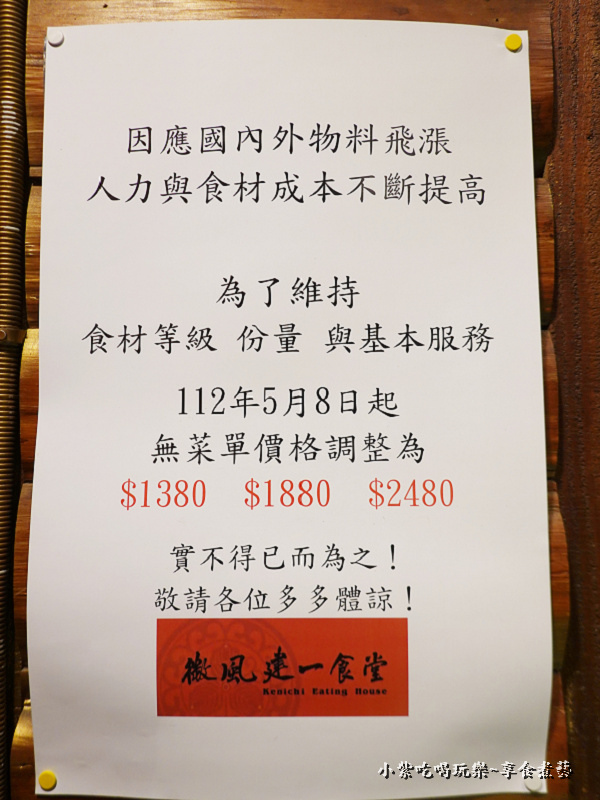 因應國內外物料飛漲
人力與食材成本不斷提高
為了維持
食材等級 份量 與基本服務
112年5月8日起
無菜單價格調整為
$1380 $1880 $2480
實不得已而為之！
敬請各位多多體諒！
微風建一食堂
Kenichi Eating House
小紫吃喝玩樂~享食煮藝